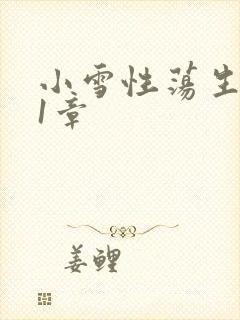 小雪性荡生
1章
姜鲤